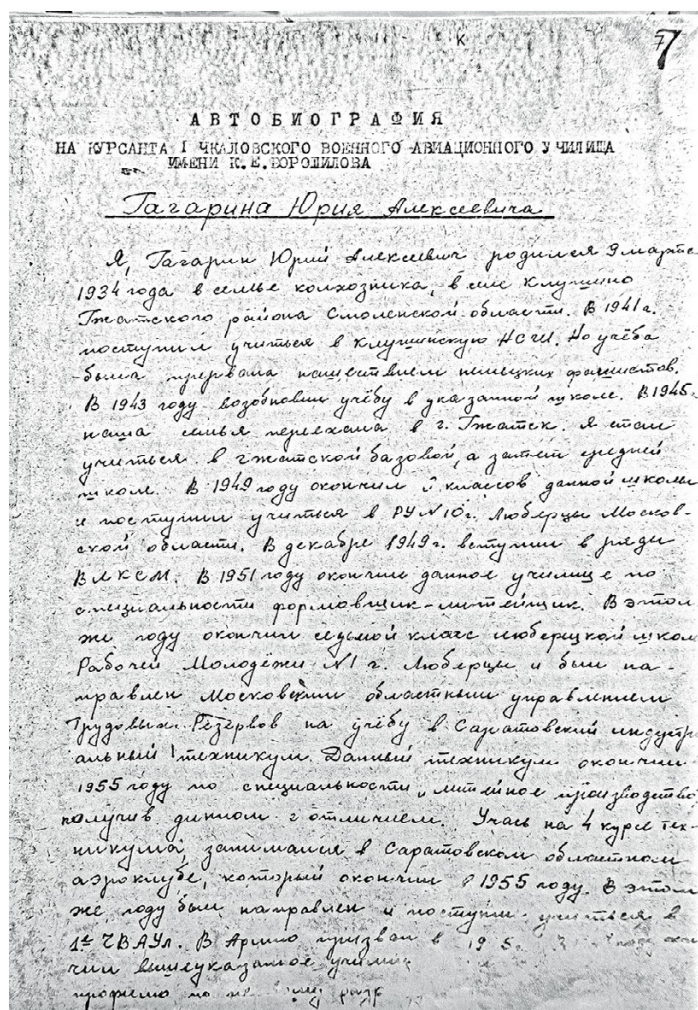 К 7
АВТОБИОГРАФИЯ
НА КУРСАНТА I ЧКАЛОВСКОГО ВОЕННОГО АВИАЦИОННОГО УЧИЛИЩА
ИМЕНИ К.Е.ВОРОШИЛОВА
Гагарина Юрия Алексеевича
Я, Гагарин Юрий Алексеевич родился 9 марта
1934 года в семье колхозника, в селе Клушино
Гжатского района Смоленской области. В 1941 г.
поступил учиться в Клушинскую НСШ. Но учёба
была прервана нашествием немецких фашистов.
В 1943 году возобновил учёбу в указанной школе. В 1945 г.
наша семья переехала в г. Гжатск. Я стал
учиться в Гжатской базовой, а затем средней
школе. В 1949 году окончил классов данной школы
и поступил учиться в РУ №10 г. Люберцы Москов-
ской области. В декабре 1949 г. вступил в ряды
ВЛКСМ. В 1951 году окончил данное училище по
специальности формовщик-литейщик. В этом
же году окончил седьмой класс люберецкой школы
Рабочей Молодёжи №1 г. Люберцы и был на-
правлен Московским областным управлением
Трудовых Резервов на учёбу в Саратовский индустри
альный техникум. Данный техникум окончил
1955 году по специальности „литейное производство
получив диплом с отличием. Учась на 4 курсе тех-
никума, занимался в Саратовском областном
аэроклубе, который окончил в 1955 году. В этом
же году был направлен и поступил учиться в
1ое ЧВАУл. В Армию призван в
чил вышеуказанное
профилю по